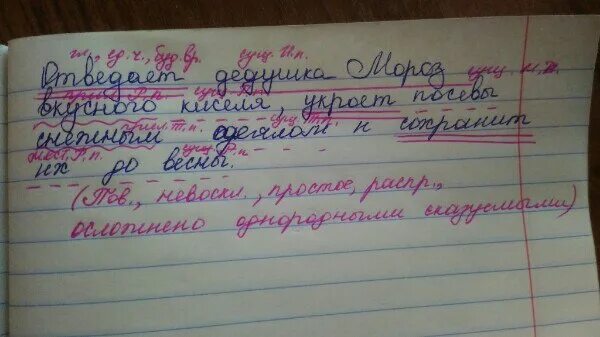 гл., ед.ч., буд.вр. сущ. И.п.
Отведает дедушка Мороз
прил. Р.п. сущ. Р.п. сущ. И.п.
вкусного киселя, укроет посевы
прил. Т.п. сущ. Т.п.
снежным одеялом и сохранит
мест. Р.п. сущ. Р.п.
их до весны.
(Пов., невоскл., простое, распр.,
осложнено однородными сказуемыми)